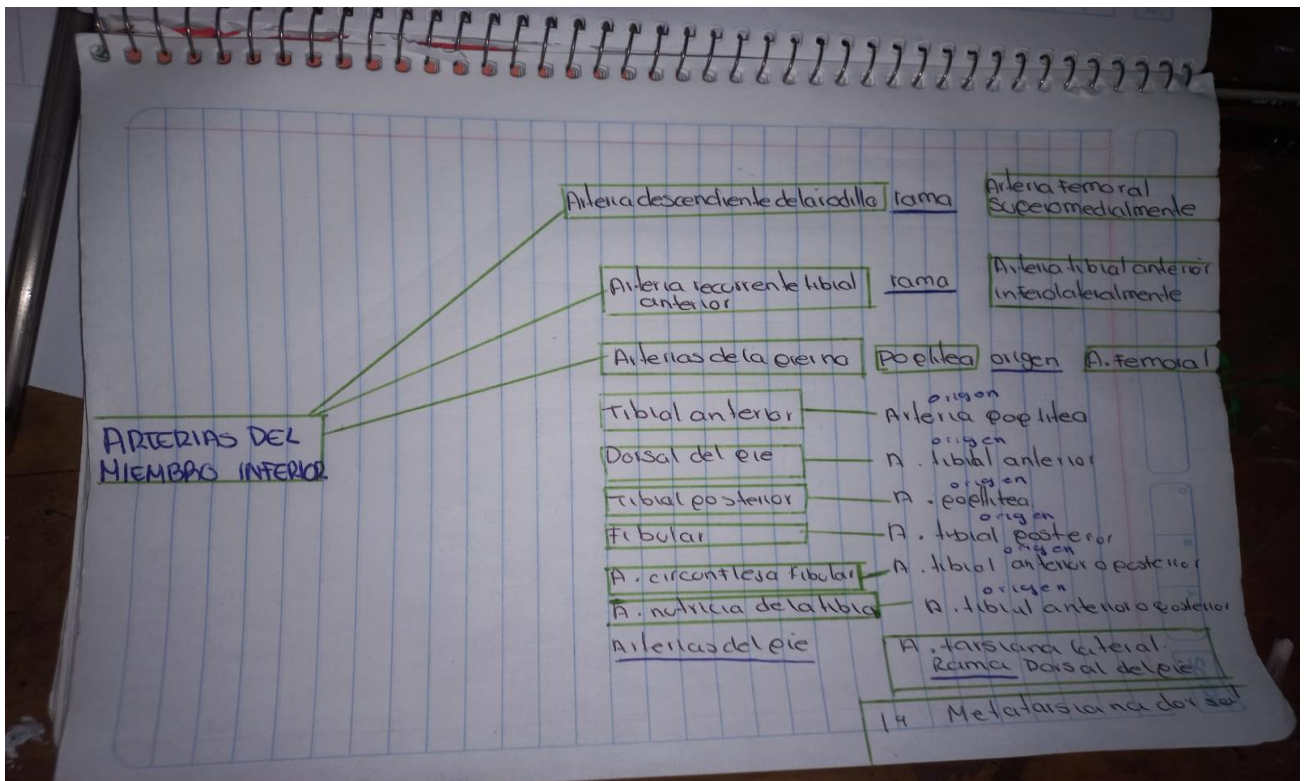 Arteria descendiente de la rodilla rama Arteria femoral
superomedialmente
Arteria recurrente tibial
anterior
rama
Arteria tibial anterior
inferolateralmente
Arterias de la pierna Poplitea origen A. femoral
ARTERIAS DEL
MIEMBRO INFERIOR
Tibial anterior
origen
Arteria poplitea
Dorsal del pie
origen
A. tibial anterior
Tibial posterior
origen
A. poplitea
Fibular
origen
A. tibial posterior
A. circunfleja fibular
origen
A. tibial anterior o posterior
A. nutricia de la tibia
origen
A. tibial anterior o posterior
Arterias del pie
A. tarsiana lateral
Rama Dorsal del pie
Metatarsiana dorsal